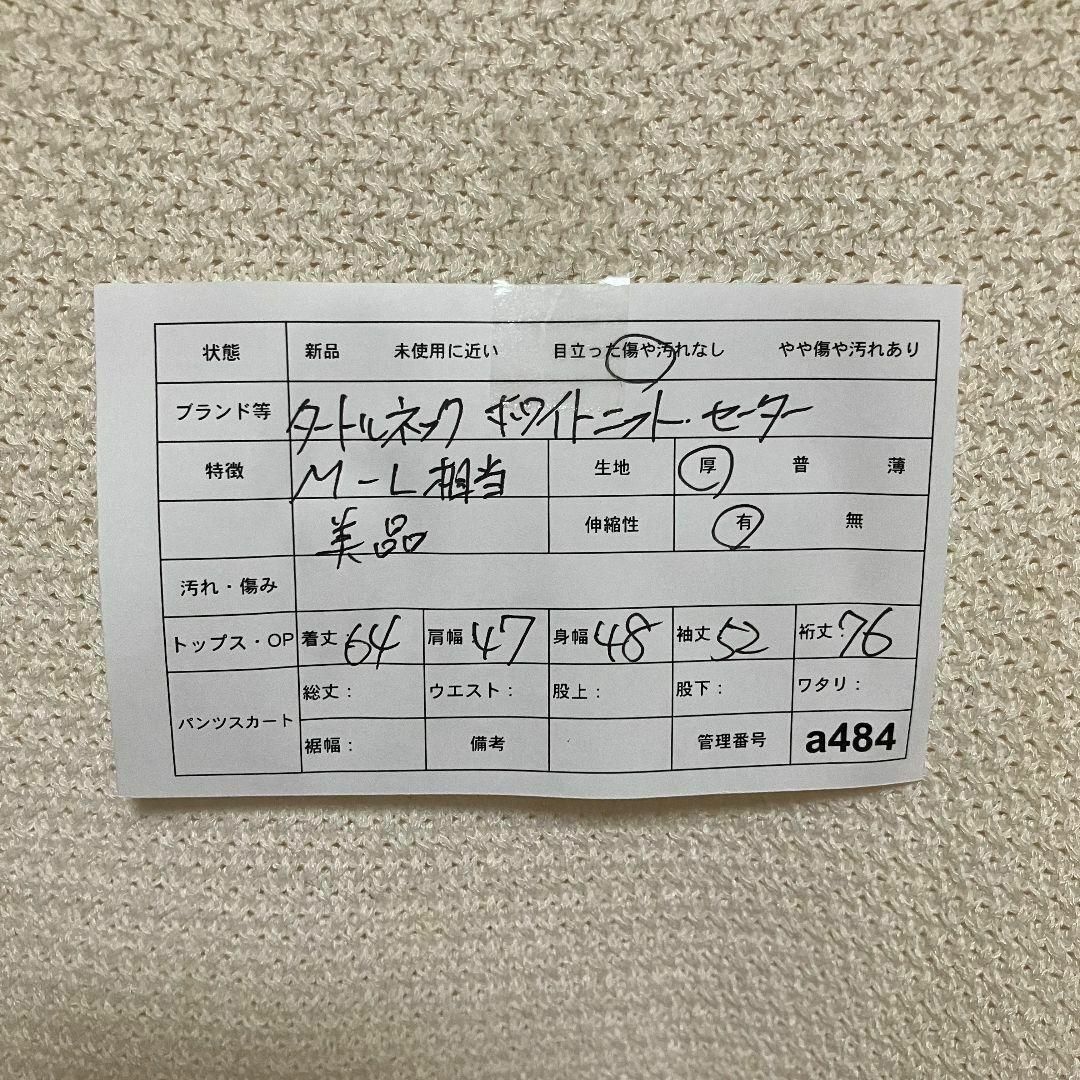 状態 新品 未使用に近い 目立った傷や汚れなし やや傷や汚れあり
ブランド等 タートルネック ホワイトニット・セーター
特徴 M-L相当 生地 厚 普 薄
美品 伸縮性 有 無
汚れ・傷み
トップス・OP 着丈:64 肩幅:47 身幅:48 袖丈:52 裄丈:76
パンツスカート 総丈: ウエスト: 股上: 股下: ワタリ:
裾幅: 備考 管理番号 a484